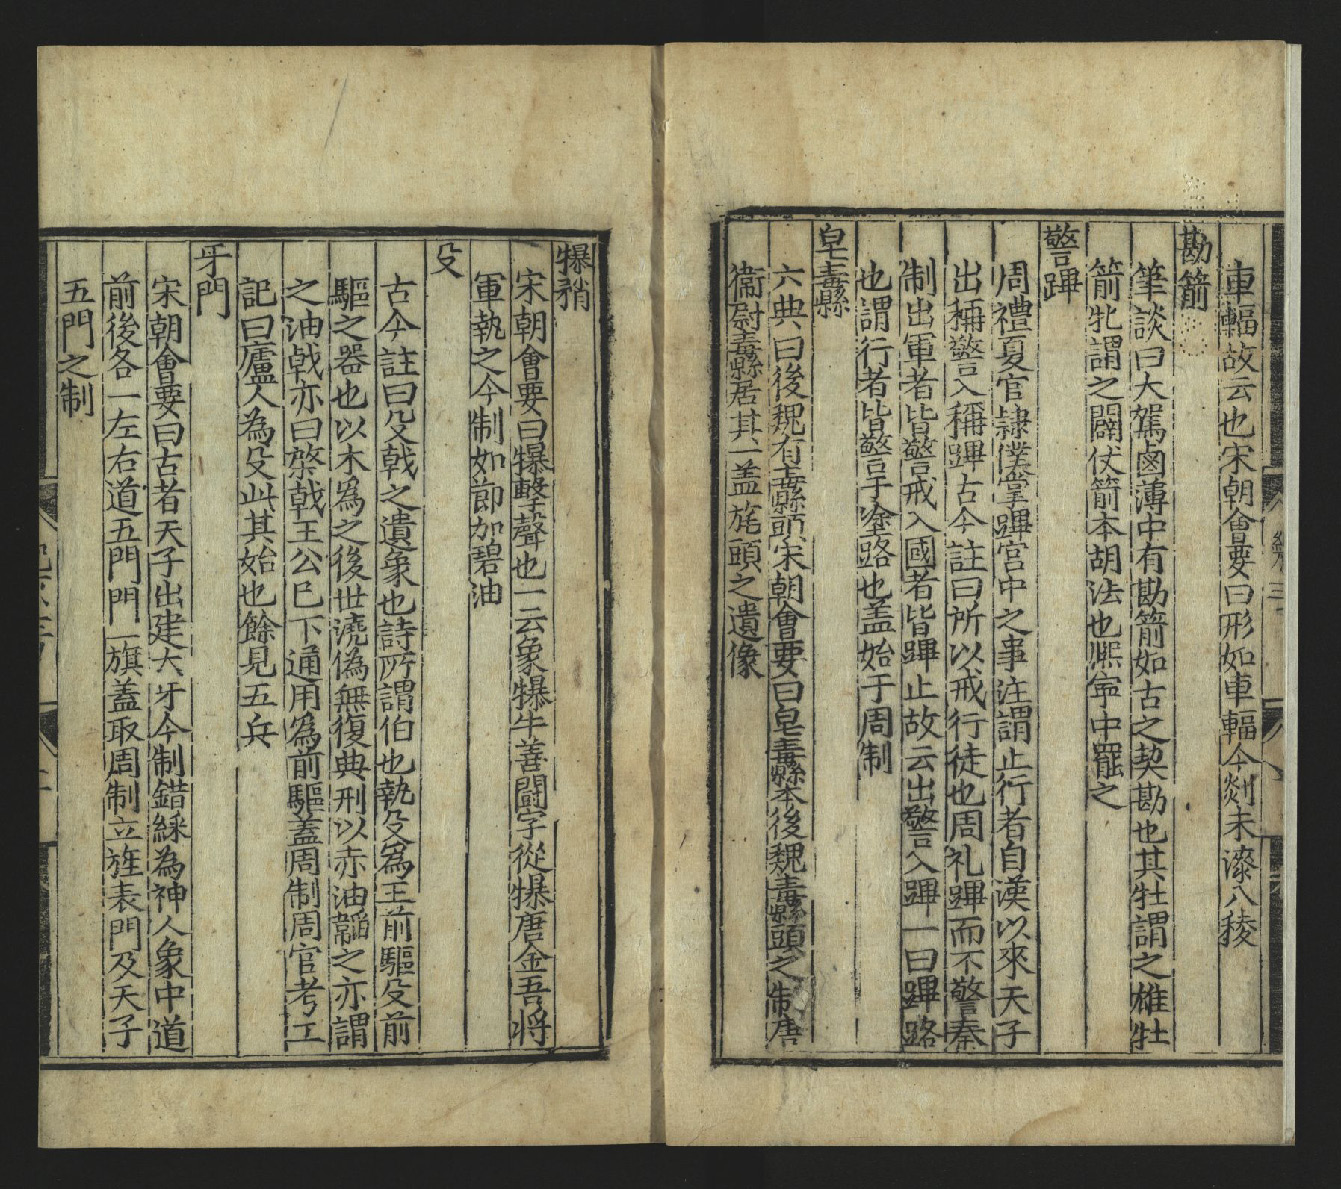 車輻故云也宋朝會要曰形如車輻今剡末漆八稜
勘箭
筆談曰大駕鹵薄中有勘箭如古之契勘也其牡謂之雄牡
箭牝謂之闢仗箭本胡法也熈寧中罷之
警蹕
周禮夏官隷僕掌蹕宮中之事注謂止行者自漢以來天子
出稱警入稱蹕古今註曰所以戒行徒也周礼蹕而不警秦
制出軍者皆警戒入國者皆蹕止故云出警入蹕一曰蹕路
也謂行者皆警于塗路也盖始于周制
皂纛
六典曰後魏有纛頭宋朝會要曰皂纛本後魏纛頭之制唐
衞尉纛居其一盖旄頭之遺像
犦矟
宋朝會要曰犦擊聲也一云象犦牛善鬬字從犦唐金吾將
軍執之今制如節加碧油
殳
古今註曰殳戟之遺象也詩所謂伯也執殳爲王前驅殳前
驅之器也以木爲之後世澆偽無復典刑以赤油韜之亦謂
之油戟亦曰棨戟王公已下通用爲前驅盖周制周官考工
記曰廬人為殳此其始也餘見五兵
牙門
宋朝會要曰古者天子出建大牙今制錯綵為神人象中道
前後各一左右道五門門一旗盖取周制立旌表門及天子
五門之制